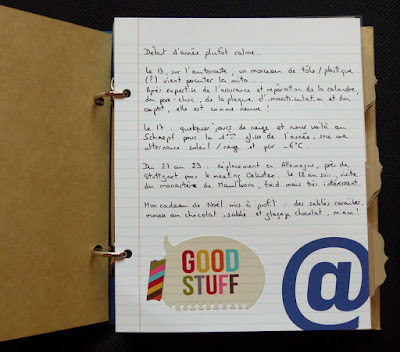 Début d'année plutôt calme.
Le 13, sur l'autoroute, un morceau de tôle / plastique
(?) vient percuter la moto...
Après expertise de l'assurance et réparation de la calandre,
du pare-choc, de la plaque d'immatriculation et du
capot, elle est comme neuve !
Le 17 : quelques jours de neige et nous voilà au
Schnepf pour la 1ère glisse de l'année, sous une
alternance soleil / neige et par -6°C.
Du 27 au 29 : déplacement en Allemagne, près de
Stuttgart pour le meeting. Le 28 au soir, visite
du monastère de Maulbronn, froid mais très intéressant.
Mon cadeau de Noël mis à profit : des sablés caraïbes,
mousse au chocolat, sablé et glaçage chocolat, miam !
GOOD
STUFF
@